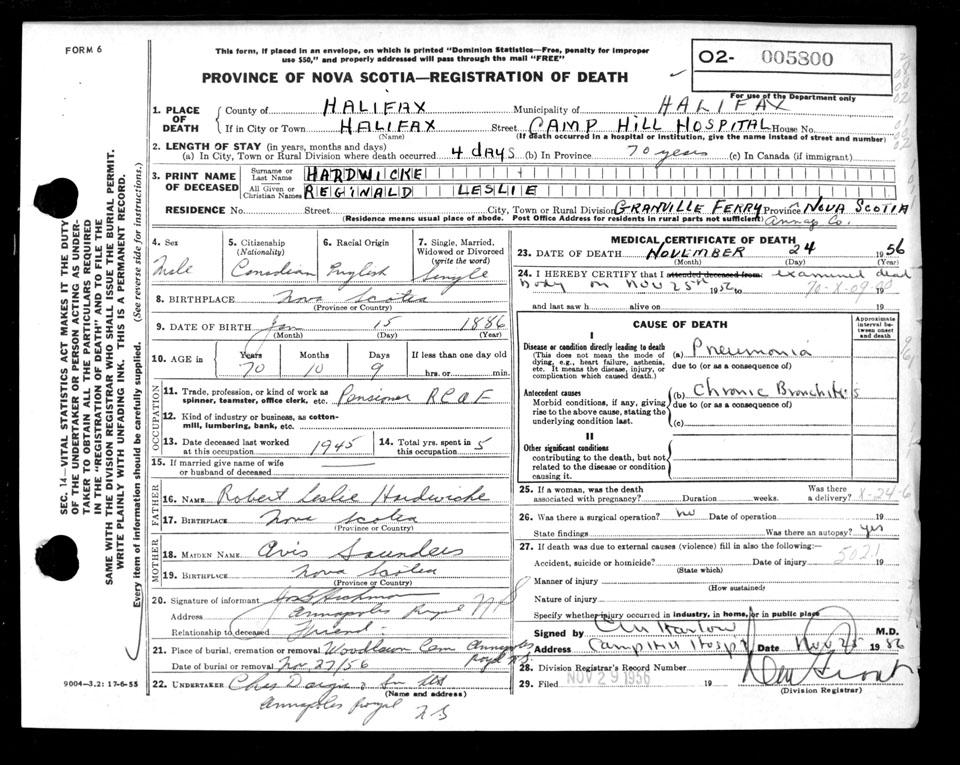 FORM 6
This form, if placed in an envelope, on which is printed "Dominion Statistics—Free, penalty for improper
use $50," and properly addressed will pass through the mail "FREE"
PROVINCE OF NOVA SCOTIA—REGISTRATION OF DEATH
02- 005800
For use of the Department only
1. PLACE OF DEATH
County of HALIFAX Municipality of HALIFAX
If in City or Town HALIFAX Street CAMP HILL HOSPITAL House No.
(Name) (If death occurred in a hospital or institution, give the name instead of street and number)
2. LENGTH OF STAY (in years, months and days)
(a) In City, Town or Rural Division where death occurred 4 days (b) In Province 70 years (c) In Canada (if immigrant)
3. PRINT NAME OF DECEASED
Surname or Last Name HARDWICKE
All Given or Christian Names REGINALD LESLIE
RESIDENCE No. Street City, Town or Rural Division GRANVILLE FERRY Province NOVA SCOTIA
(Residence means usual place of abode. Post Office Address for residents in rural parts not sufficient) Annap Co.
4. Sex
Male
5. Citizenship (Nationality)
Canadian
6. Racial Origin
English
7. Single, Married, Widowed or Divorced (write the word)
Single
8. BIRTHPLACE Nova Scotia
(Province or Country)
9. DATE OF BIRTH Jan 15 1886
(Month) (Day) (Year)
10. AGE in Years Months Days If less than one day old
70 10 9 hrs. or min.
OCCUPATION
11. Trade, profession, or kind of work as
spinner, teamster, office clerk, etc. Pensioner RCAF
12. Kind of industry or business, as cotton-
mill, lumbering, bank, etc.
13. Date deceased last worked at this occupation 1945
14. Total yrs. spent in 5
15. If married give name of wife
or husband of deceased
FATHER
16. NAME Robert Leslie Hardwicke
17. BIRTHPLACE Nova Scotia
(Province or Country)
MOTHER
18. MAIDEN NAME Avis Saunders
19. BIRTHPLACE Nova Scotia
(Province or Country)
20. Signature of informant
Address Annapolis Royal NS
Relationship to deceased Friend
21. Place of burial, cremation or removal Woodlawn Cem Annapolis
Royal N.S.
Date of burial or removal Nov. 27/56
22. UNDERTAKER Chas & Son Ltd
(Name and address)
Annapolis Royal
N S
9004-3.2: 17-6-55
MEDICAL CERTIFICATE OF DEATH
23. DATE OF DEATH NOVEMBER 24 1956
(Month) (Day) (Year)
24. I HEREBY CERTIFY that I attended deceased from: examined dead
body on NOV 25th 1956 to 70-X-09 19
and last saw h alive on 19
CAUSE OF DEATH
Approximate interval between onset and death
I
Disease or condition directly leading to death
(This does not mean the mode of
dying, e.g., heart failure, asthenia,
etc. It means the disease, injury, or
complication which caused death.)
(a) Pneumonia
due to (or as a consequence of)
Antecedent causes
Morbid conditions, if any, giving
rise to the above cause, stating the
underlying condition last.
(b) Chronic Bronchitis
due to (or as a consequence of)
(c)
II
Other significant conditions
contributing to the death, but not
related to the disease or condition
causing it.
25. If a woman, was the death
associated with pregnancy? Duration weeks. Was there
a delivery? X-24-6
26. Was there a surgical operation? no Date of operation 19
State findings Was there an autopsy? yes
27. If death was due to external causes (violence) fill in also the following:—
Accident, suicide or homicide? Date of injury 5021 19
(State which)
Manner of injury
(How sustained)
Nature of injury
Specify whether injury occurred in industry, in home, or in public place
Signed by M.D.
Address Camp Hill Hospt Date Nov 25 1956
28. Division Registrar's Record Number
29. Filed NOV 29 1956 19
(Division Registrar)
SEC. 14—VITAL STATISTICS ACT MAKES IT THE DUTY
OF THE UNDERTAKER OR PERSON ACTING AS UNDER-
TAKER TO OBTAIN ALL THE PARTICULARS REQUIRED
IN THE "REGISTRATION OF DEATH" AND TO FILE THE
SAME WITH THE DIVISION REGISTRAR WHO SHALL ISSUE THE BURIAL PERMIT.
WRITE PLAINLY WITH UNFADING INK. THIS IS A PERMANENT RECORD.
Every item of information should be carefully supplied. (See reverse side for instructions.)